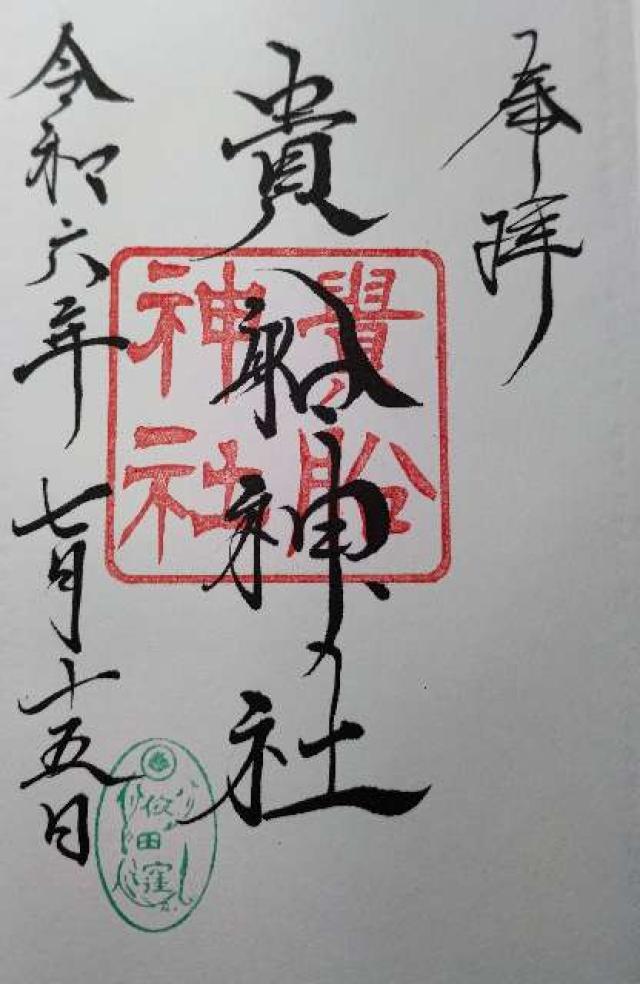 奉拝
貴船神社
貴船
神社
令和六年七月十五日
依田窪